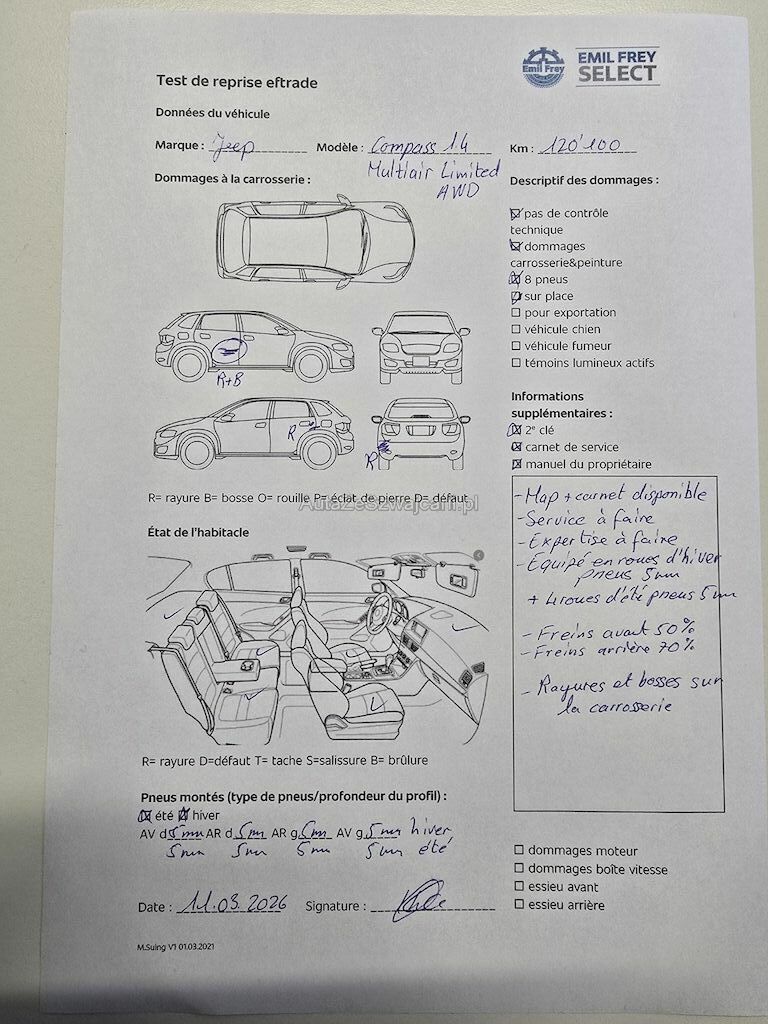 EMIL FREY
SELECT
Emil Frey
Test de reprise eftrade
Données du véhicule
Marque : Jeep Modèle : Compass 1.4 Km : 120'100
Multiair Limited
AWD
Dommages à la carrosserie :
Descriptif des dommages :
pas de contrôle
technique
dommages
carrosserie&peinture
8 pneus
sur place
pour exportation
véhicule chien
véhicule fumeur
témoins lumineux actifs
R+B
R
R
Informations
supplémentaires :
2e clé
carnet de service
manuel du propriétaire
R= rayure B= bosse O= rouille P= éclat de pierre D= défaut
AutaZeSzwajcarii.pl
État de l'habitacle
- Map + carnet disponible
- Service à faire
- Expertise à faire
- Equipé en roues d'hiver
pneus 5mm
+ 4 roues d'été pneus 5mm
- Freins avant 50%
- Freins arrière 70%
- Rayures et bosses sur
la carrosserie
R= rayure D=défaut T= tache S=salissure B= brûlure
Pneus montés (type de pneus/profondeur du profil) :
été hiver
AV d 5mm AR d 5mm AR g 5mm AV g 5mm hiver
5mm 5mm 5mm 5mm été
dommages moteur
dommages boîte vitesse
essieu avant
essieu arrière
Date : 11.03.2026 Signature :
M.Suing V1 01.03.2021